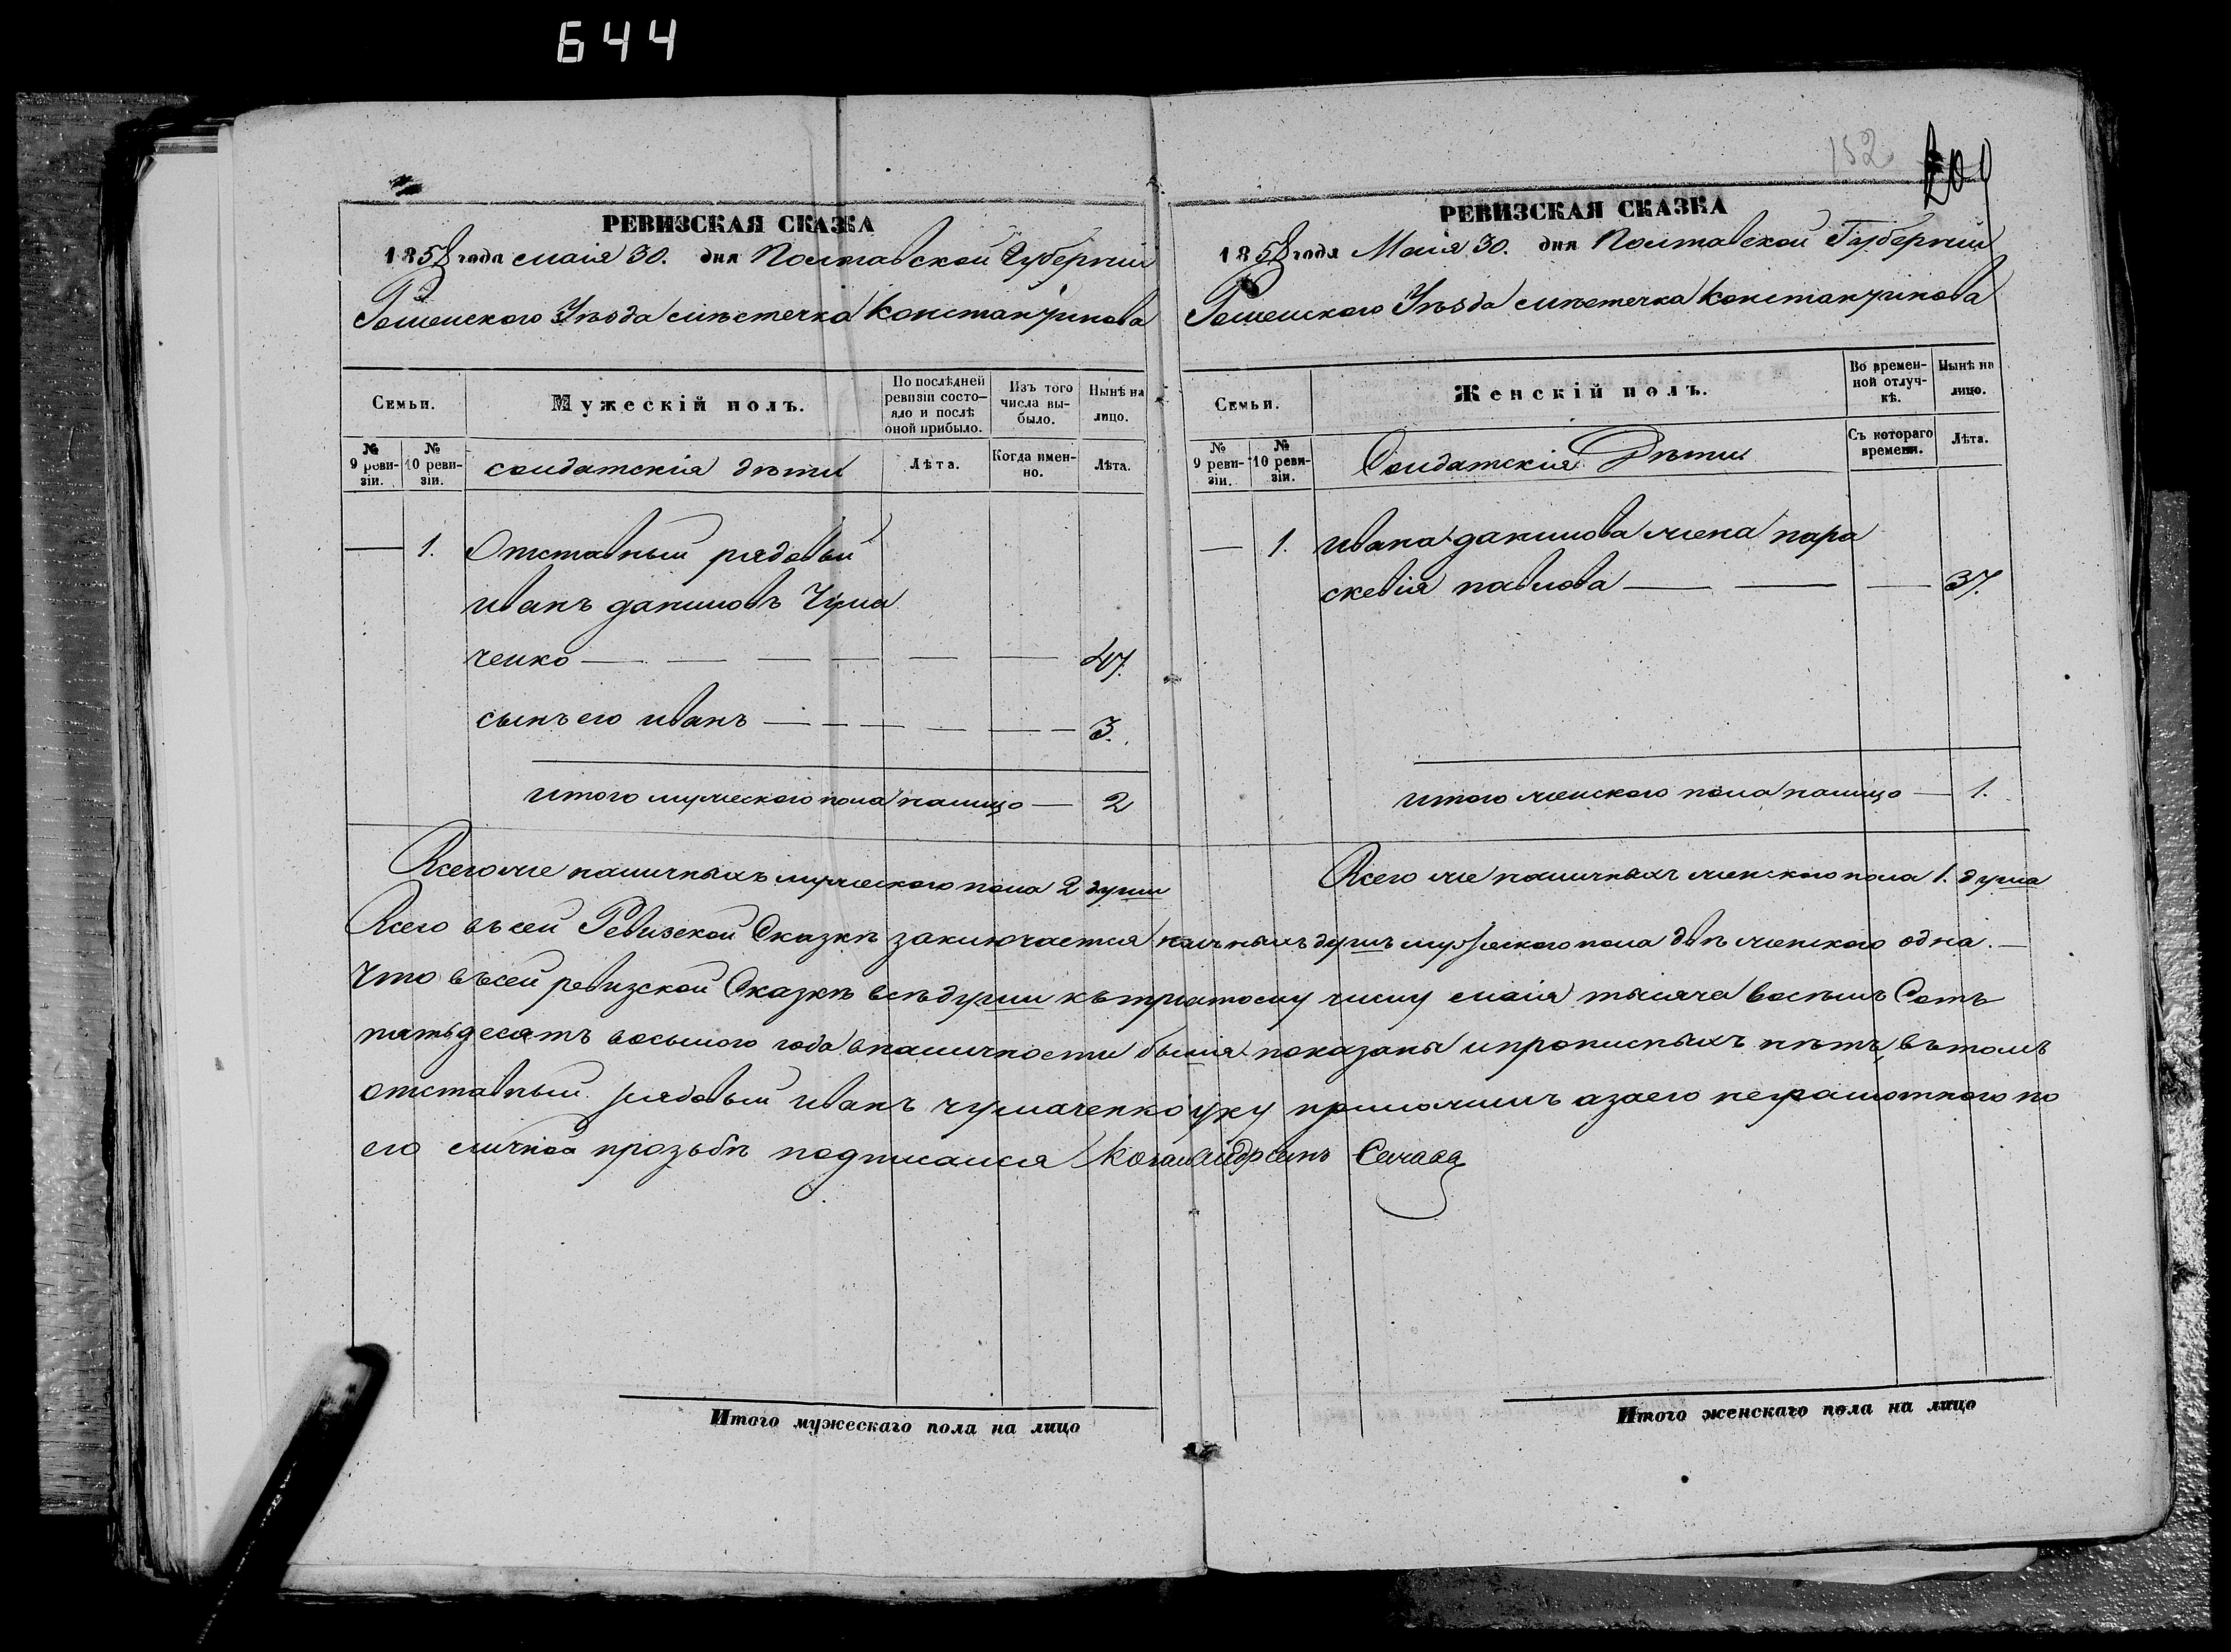 644
152
РЕВИЗСКАЯ СКАЗКА
1858 года маія 30. дня Полтавской Губерніи
Роменскаго Уѣзда мѣстечка Константинова
Семьи.
Мужескій полъ.
По послѣдней ревизіи состояло и послѣ оной прибыло.
Изъ того числа выбыло.
Нынѣ на лицо.
№ 9 ревизіи.
№ 10 ревизіи.
солдатскія дѣти
Лѣта.
Когда именно.
Лѣта.
— 1. Отставный рядовый
иванъ даниловъ Чума
ченко — — — — — — 47.
сынъ его иванъ — — — — — — 3.
итого мужеского пола налицо — 2
Всего же наличныхъ мужеского пола 2 души
РЕВИЗСКАЯ СКАЗКА
1858 года Маія 30. дня Полтавской Губерніи
Роменского Уѣзда мѣстечка Константинова
Семьи.
Женскій полъ.
Во временной отлучкѣ.
Нынѣ на лицо.
№ 9 ревизіи.
№ 10 ревизіи.
Солдатскія Дѣти
Съ котораго времени.
Лѣта.
— 1. ивана данилова жена пара
скевія павлова — — — 37.
итого женского пола налицо — 1.
Всего же наличныхъ женского пола 1. душа
Всего въ сей Ревизской Сказкѣ заключается наличныхъ душъ мужеского пола двѣ женского одна. —
Что въ сей ревизской Сказкѣ всѣ души къ тритцатому числу маія тысяча восемь Сотъ
пятьдесятъ восьмого года вналичности былія показаны ипрописныхъ нѣтъ, вътомъ
отставный рядовый иванъ чумаченко руку приложилъ азаего неграмотного по
его личной прозьбѣ подписался
Итого мужескаго пола на лицо
Итого женскаго пола на лицо